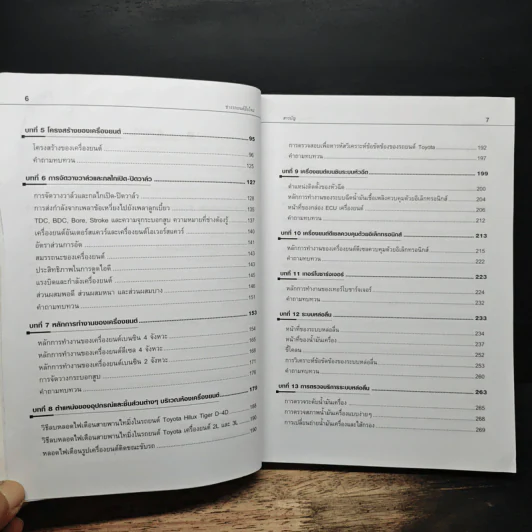 6
ช่างรถยนต์มือใหม่
บทที่ 5 โครงสร้างของเครื่องยนต์ 95
โครงสร้างของเครื่องยนต์ 96
คำถามทบทวน 125
บทที่ 6 การจัดวางวาล์วและกลไกเปิด-ปิดวาล์ว 127
การจัดวางวาล์วและกลไกเปิด-ปิดวาล์ว 128
การส่งกำลังจากเพลาข้อเหวี่ยงไปยังเพลาลูกเบี้ยว 136
TDC, BDC, Bore, Stroke และความจุกระบอกสูบ ความหมายที่ช่างต้องรู้
เครื่องยนต์อันเดอร์สแควร์และเครื่องยนต์โอเวอร์สแควร์
อัตราส่วนการอัด
สมรรถนะของเครื่องยนต์
ประสิทธิภาพในการดูดไอดี
แรงบิดและกำลังเครื่องยนต์
ส่วนผสมพอดี ส่วนผสมหนา และส่วนผสมบาง
คำถามทบทวน 151
บทที่ 7 หลักการทำงานของเครื่องยนต์ 153
หลักการทำงานของเครื่องยนต์เบนซิน 4 จังหวะ 154
หลักการทำงานของเครื่องยนต์ดีเซล 4 จังหวะ
หลักการทำงานของเครื่องยนต์เบนซิน 2 จังหวะ
การจัดวางกระบอกสูบ
คำถามทบทวน
บทที่ 8 ตำแหน่งของอุปกรณ์และชิ้นส่วนต่างๆ บริเวณห้องเครื่องยนต์ 179
วิธีลบหลอดไฟเตือนสายพานไทม์มิ่งในรถยนต์ Toyota Hilux Tiger D-4D
วิธีลบหลอดไฟเตือนสายพานไทม์มิ่งในรถยนต์ Toyota เครื่องยนต์ 2L และ 3L
หลอดไฟเตือนรูปเครื่องยนต์ติดขณะขับรถ 190
สารบัญ
7
การตรวจสอบเพื่อหารหัสวิเคราะห์ข้อขัดข้องของรถยนต์ Toyota 192
คำถามทบทวน 197
บทที่ 9 เครื่องยนต์เบนซินระบบหัวฉีด 199
ตำแหน่งติดตั้งของหัวฉีด 200
หลักการทำงานของระบบฉีดน้ำมันเชื้อเพลิงควบคุมด้วยอิเล็กทรอนิกส์ 204
หน้าที่ของกล่อง ECU เครื่องยนต์ 206
คำถามทบทวน 212
บทที่ 10 เครื่องยนต์ดีเซลควบคุมด้วยอิเล็กทรอนิกส์ 213
หลักการทำงานของเครื่องยนต์ดีเซลควบคุมด้วยอิเล็กทรอนิกส์ 215
คำถามทบทวน 222
บทที่ 11 เทอร์โบชาร์จเจอร์ 223
หลักการทำงานของเทอร์โบชาร์จเจอร์ 224
คำถามทบทวน 232
บทที่ 12 ระบบหล่อลื่น 233
หน้าที่ของระบบหล่อลื่น 234
หน้าที่ของน้ำมันเครื่อง 237
ขี้โคลน 252
การวิเคราะห์ข้อขัดข้องของระบบหล่อลื่น 253
คำถามทบทวน 260
บทที่ 13 การตรวจบริการระบบหล่อลื่น 263
การตรวจระดับน้ำมันเครื่อง 265
การตรวจสภาพน้ำมันเครื่องแบบง่ายๆ 268
การเปลี่ยนถ่ายน้ำมันเครื่องและไส้กรอง 269